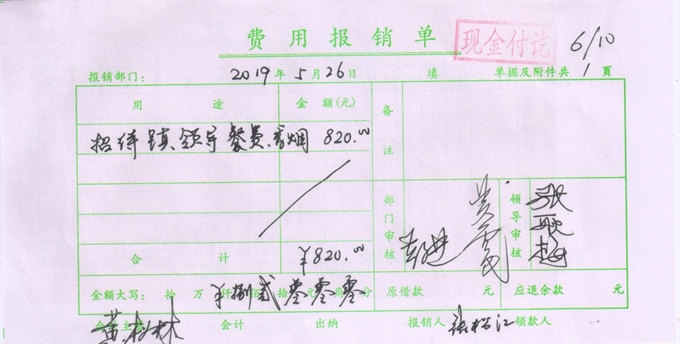 费用报销单 现金付讫 6/10
报销部门: 2019年5月26日 填 单据及附件共1页
用途 金额(元) 备注
招待镇领导餐费、香烟 820.00
部门审核 领导审核 张
合计 ¥820.00
金额大写: 拾万仟 ¥捌 贰 零 零 零 分 原借款 元 应退余款 元
黄 林 会计 出纳 报销人 张松江 领款人